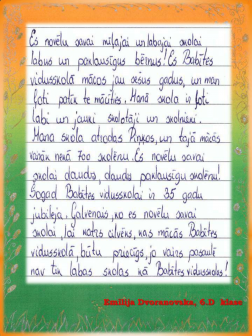 Es novēlu savai mīļajai un labajai skolai
labus un paklausīgus bērnus! Es Babītes
vidusskolā mācos jau sesus gadus, un man
ļoti patīk te mācīties. Manā skolā ir ļoti
labi un jauki skolotāji un skolnieki.
Mana skola atrodas Piņķos, un tajā mācās
vairāk nekā 700 skolēnu. Es novēlu savai
skolai daudz, daudz paklausīgu skolēnu!
Šogad Babītes vidusskolai ir 35 gadu
jubileja. Galvenais, ko es novēlu savai
skolai, lai katrs cilvēks, kas mācās Babītes
vidusskolā, būtu priecīgs, jo vairs pasaulē
nav tik labas skolas kā Babītes vidusskolas!
Emīlija Dvoranovska, 6.D klase